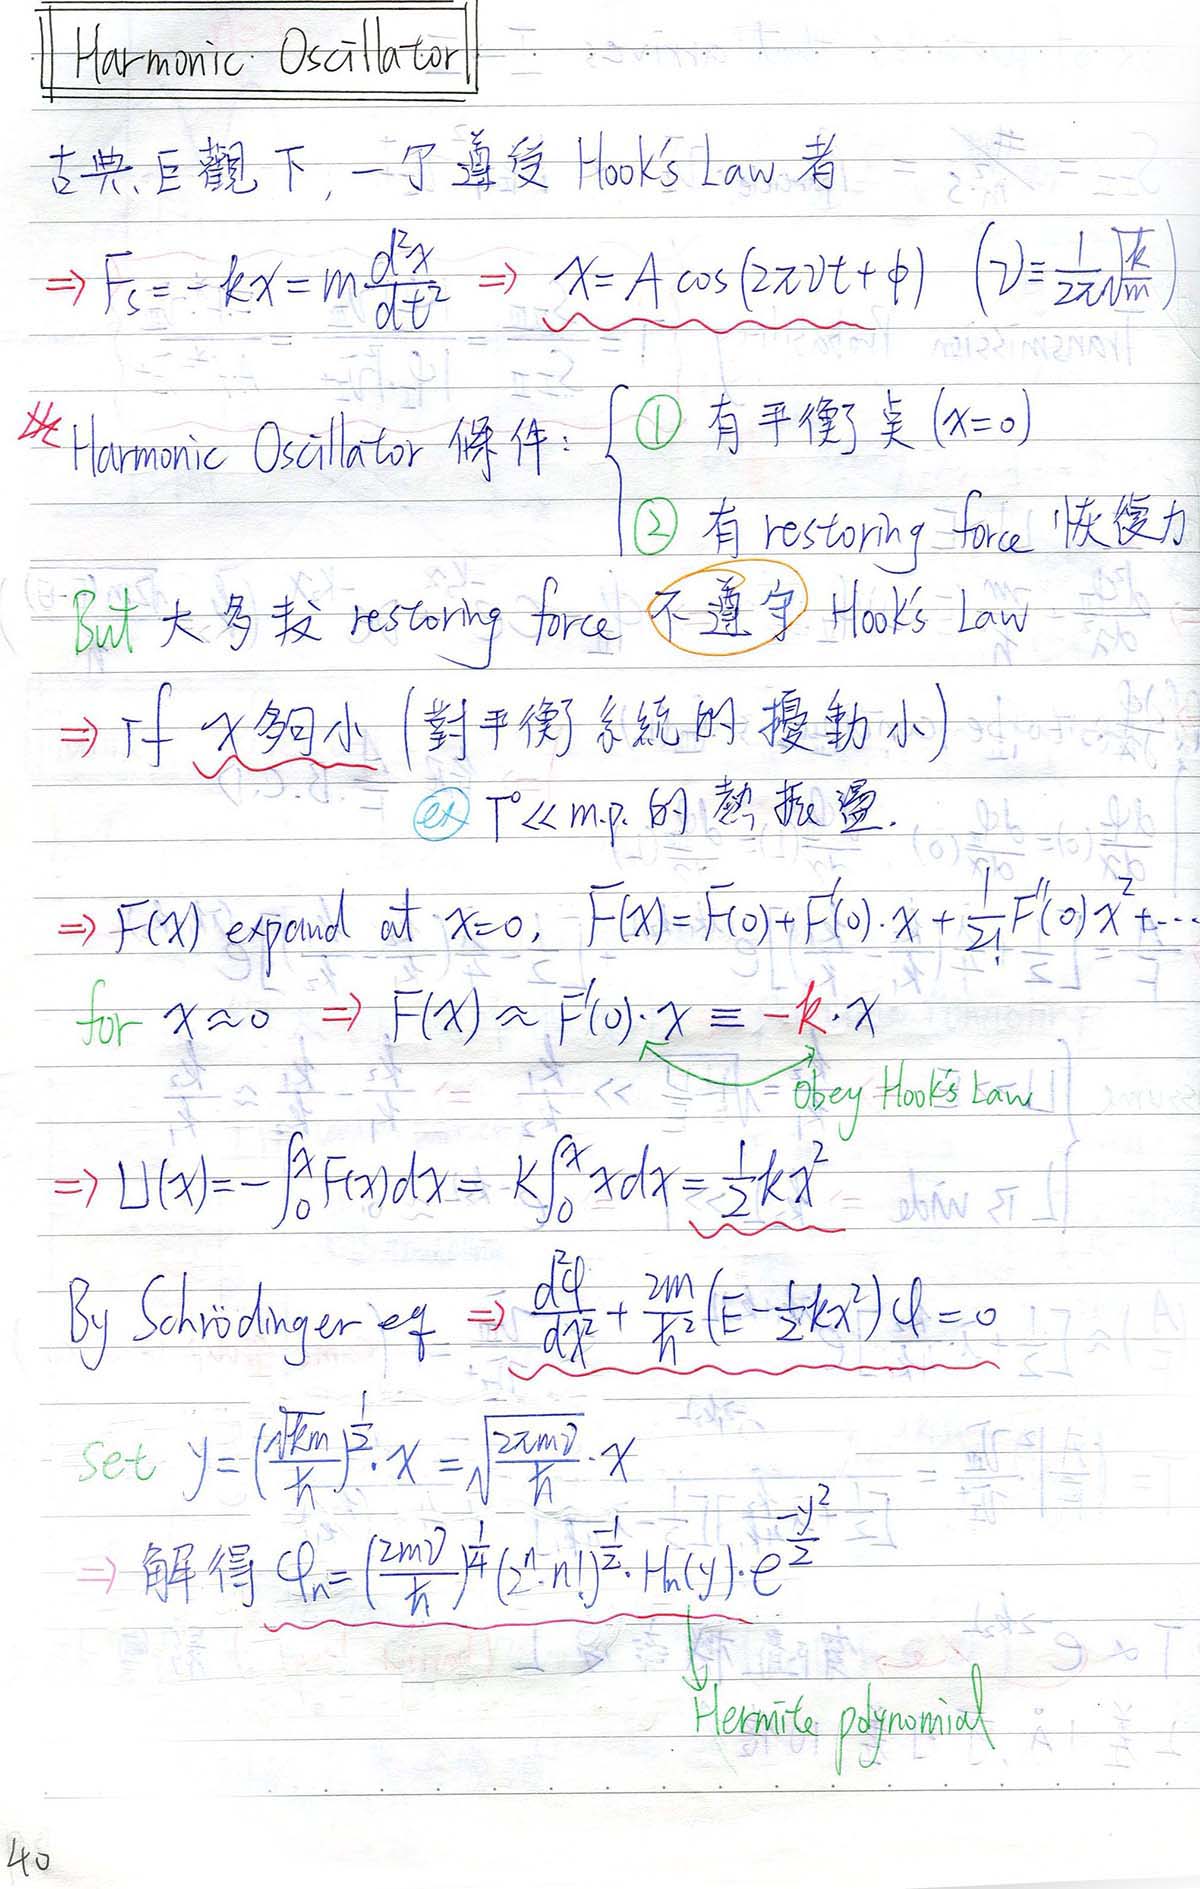 Harmonic Oscillator
古典巨觀下,一個遵受 Hook's Law 者
⇒ Fs = -kx = m d²x/dt² ⇒ x = A cos(2πνt+φ) (ν ≡ 1/2π √(k/m))
※ Harmonic Oscillator 條件: ① 有平衡點 (x=0)
② 有 restoring force 恢復力
But 大多數 restoring force 不遵守 Hook's Law
⇒ If x 夠小 (對平衡系統的擾動小)
ex T° << m.p. 的熱振盪.
⇒ F(x) expand at x=0, F(x) = F(0) + F'(0)·x + 1/2! F''(0)x² + ...
for x≈0 ⇒ F(x) ≈ F'(0)·x ≡ -k·x
Obey Hook's Law
⇒ U(x) = -∫₀ˣ F(x)dx = k∫₀ˣ x dx = 1/2 kx²
By Schrödinger eq ⇒ d²φ/dx² + 2m/ħ² (E - 1/2 kx²) φ = 0
Set y = (√km/ħ)^(1/2)·x = √(2πmν/ħ)·x
⇒ 解得 φn = (2mν/ħ)^(1/4) (2ⁿ·n!)^(-1/2)·Hn(y)·e^(-y²/2)
Hermite polynomial
40